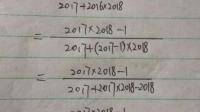 2017+2016×2018
= 2017×2018-1
2017+(2017-1)×2018
= 2017×2018-1
2017+2017×2018-2018